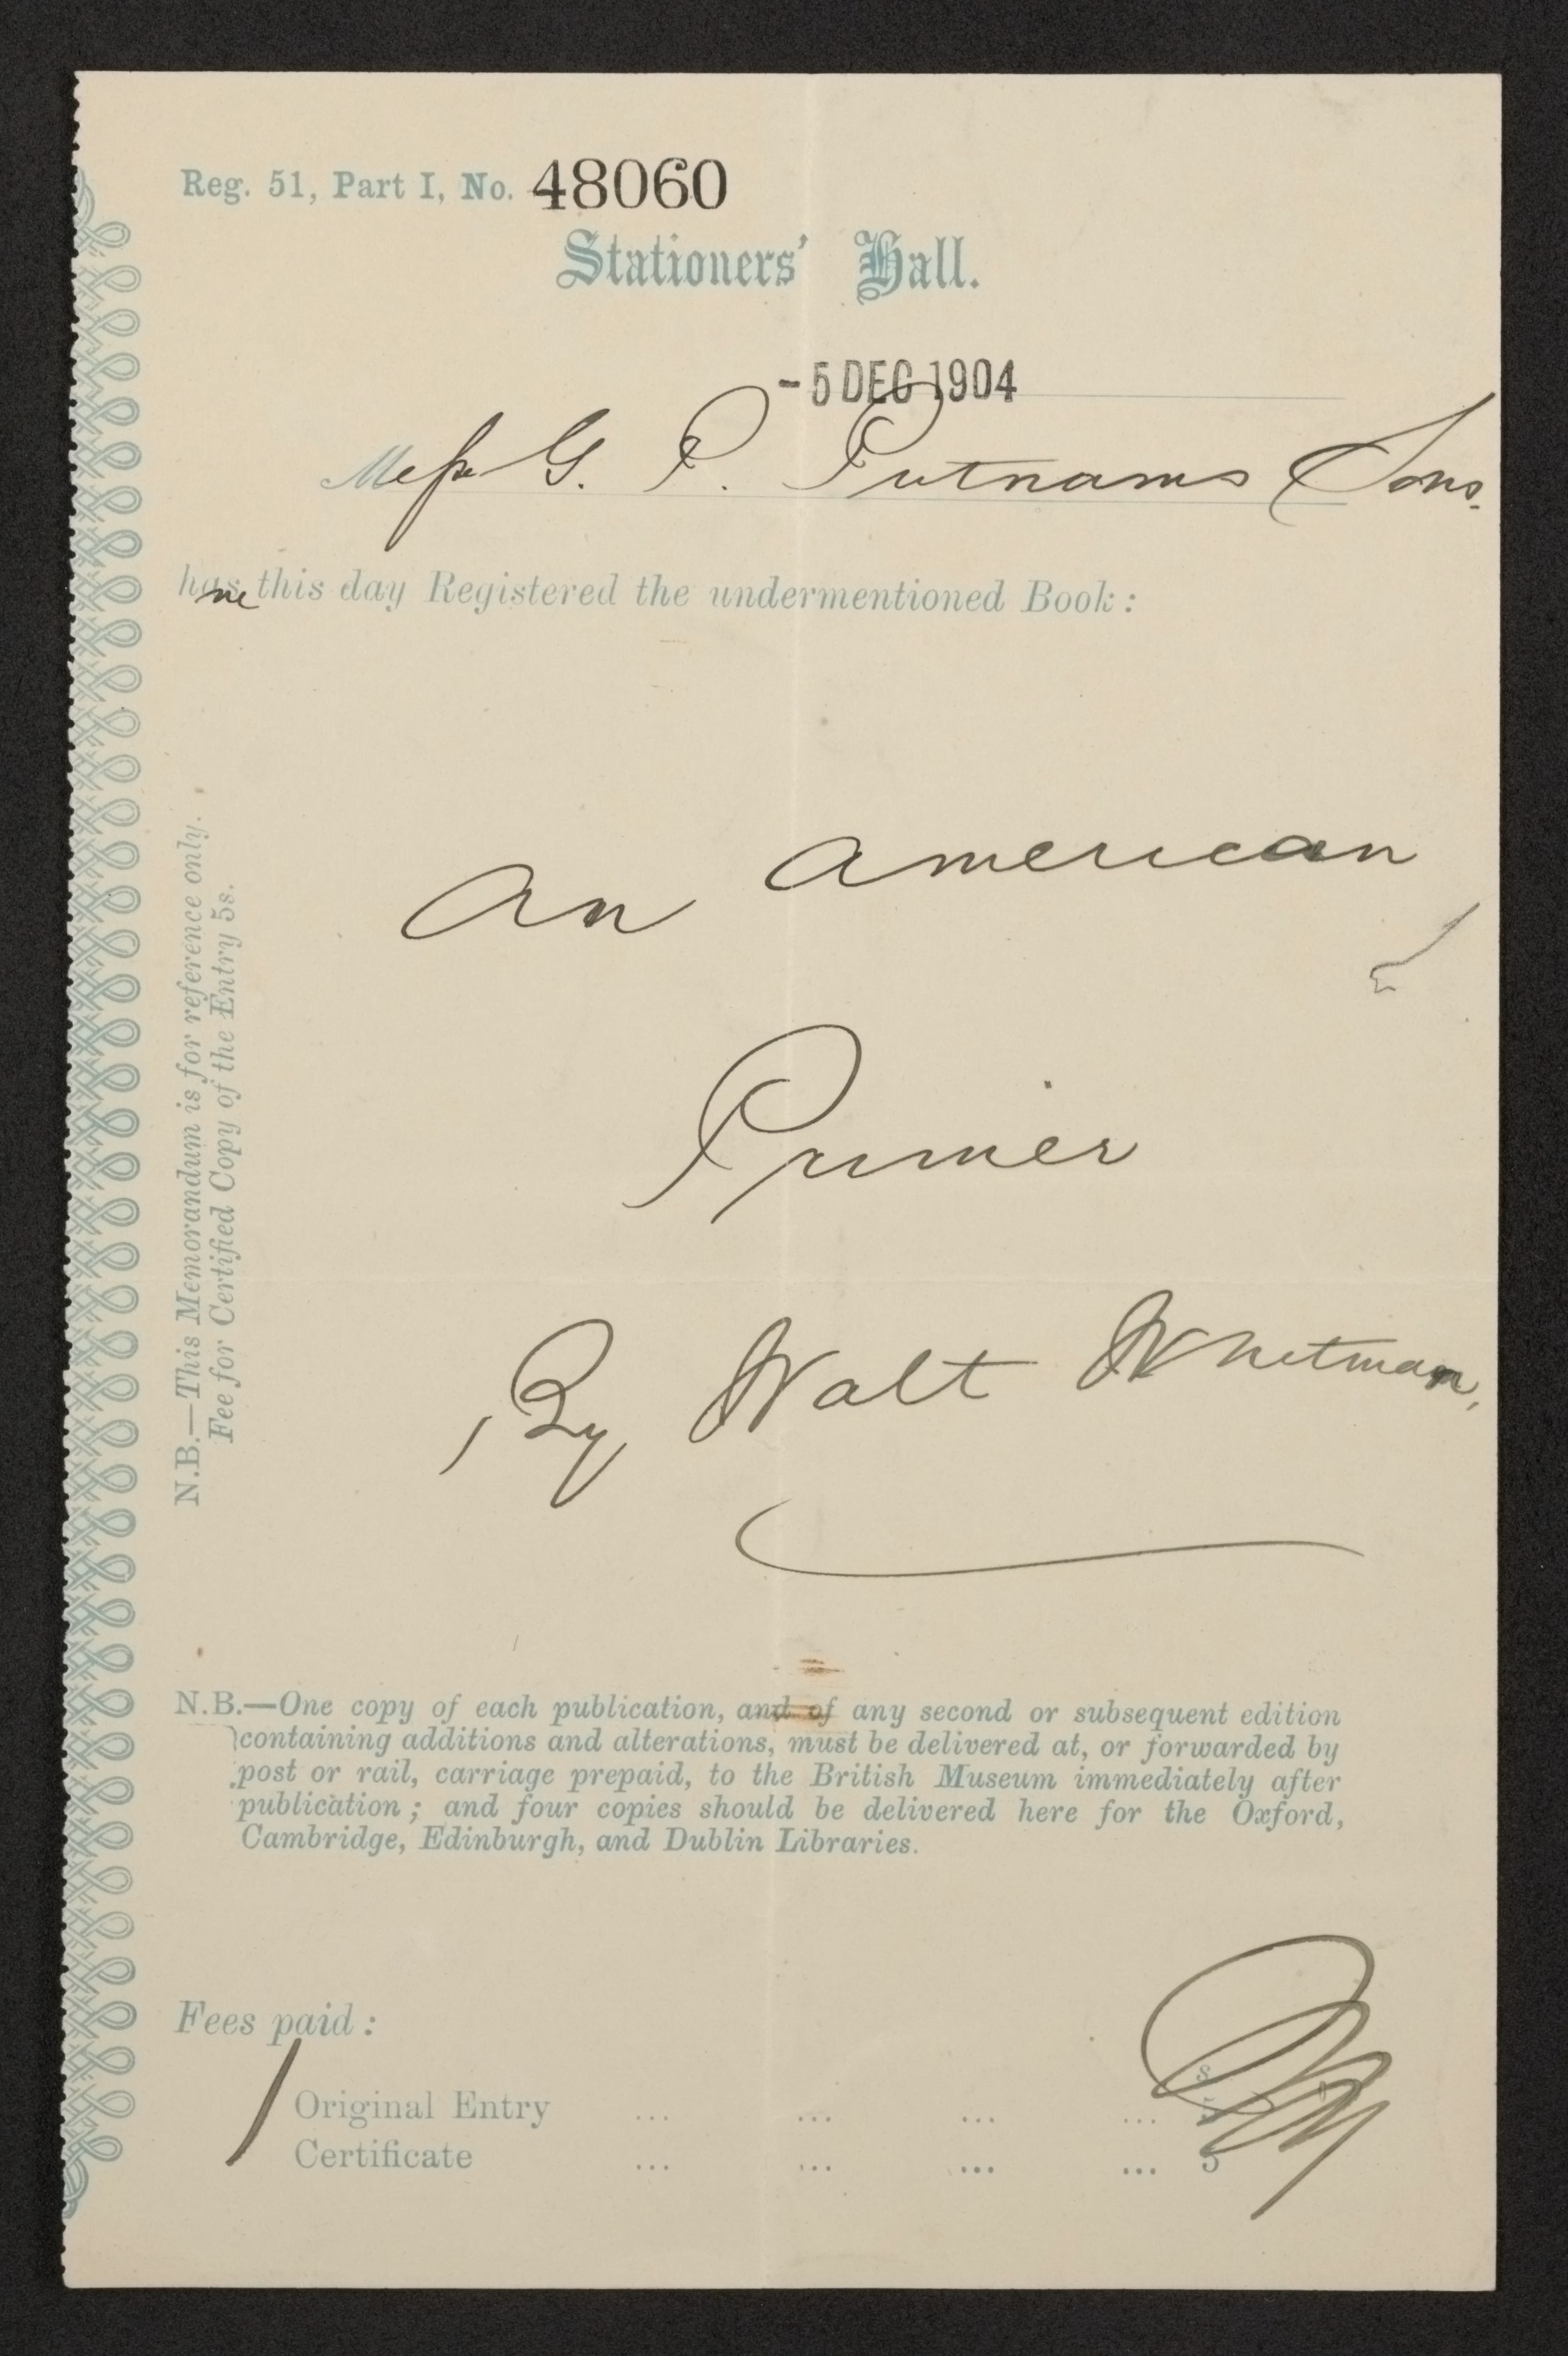 Reg. 51, Part I, No. 48060
Stationers' Hall.
- 5 DEC 1904
Messrs G. P. Putnams Sons.
have this day Registered the undermentioned Book:
An American
Primer
By Walt Whitman,
N.B.—This Memorandum is for reference only.
Fee for Certified Copy of the Entry 5s.
N.B.—One copy of each publication, and of any second or subsequent edition
containing additions and alterations, must be delivered at, or forwarded by
post or rail, carriage prepaid, to the British Museum immediately after
publication; and four copies should be delivered here for the Oxford,
Cambridge, Edinburgh, and Dublin Libraries.
Fees paid:
s
Original Entry ... ... ... ...
Certificate ... ... ... ... 5